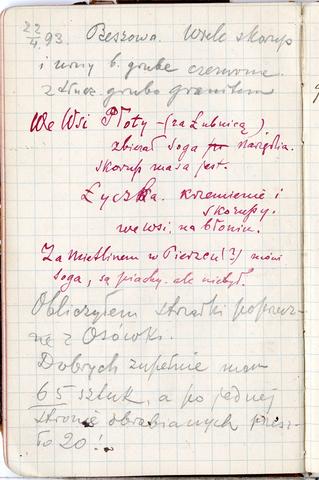 22/4.93. Beszowa. Wiele skorup
i urny b. grube czerwone
z tłucz. grubo granitem
We Wsi Płoty - (za Łubnicą)
zbierał Soga narzędzia.
skorup masa jest.
Łyczba. krzemienie i
skorupy.
we wsi, na błoniu.
Za Mietlinem w Pierzch (?) mówi
Soga, są piachy. ale nie był.
Obliczyłem strzałki poprzecz-
ne z Osówki.
Dobrych zupełnie mam
65 sztuk, a po jednej
stronie obrabianych przesz-
ło 20!